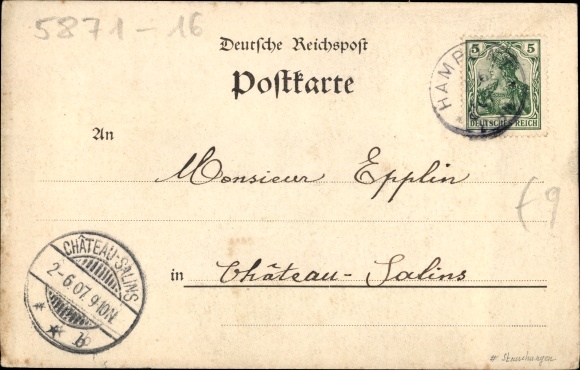 5871-16
Deutsche Reichspost
Postkarte
5 5
DEUTSCHES REICH
HAMP
An
Monsieur Epplin
in Château-Salins
CHÂTEAU-SALINS
2-6.07. 9-10N.
* * b